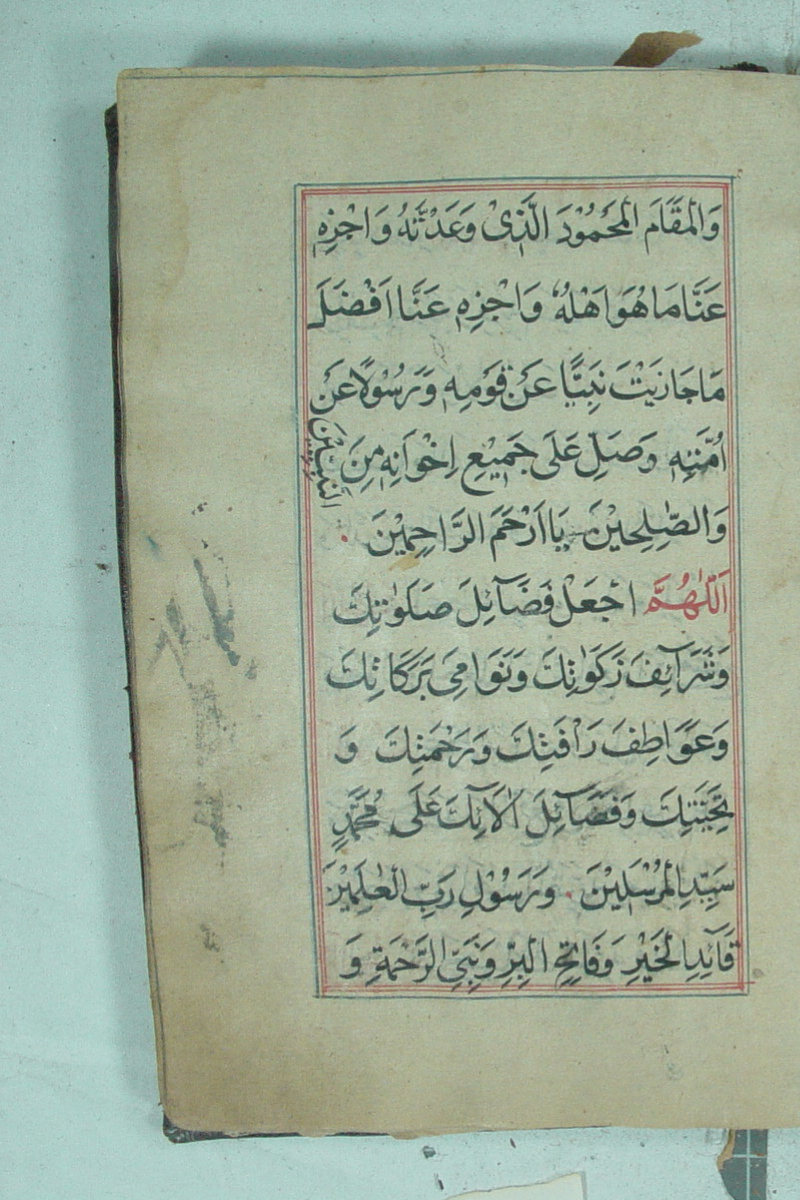 وَالْمَقَامَ الْمَحْمُوْدَ الَّذِیْ وَعَدْتَّهُ وَاجْزِهٖ
عَنَّا مَا هُوَ اَهْلُهٗ وَاجْزِهٖ عَنَّا اَفْضَلَ
مَا جَازَيْتَ نَبِيًّا عَنْ قَوْمِهٖ وَرَسُوْلًا عَنْ
اُمَّتِهٖ وَصَلِّ عَلَى جَمِيْعِ اِخْوَانِهٖ مِنَ النَّبِيّٖنَ
وَالصّٰلِحِيْنَ يَا اَرْحَمَ الرَّاحِمِيْنَ
اَللّٰهُمَّ اجْعَلْ فَضَآئِلَ صَلَوٰتِكَ
وَشَرَآئِفَ زَكَوٰتِكَ وَنَوَامِیَ بَرَكَاتِكَ
وَعَوَاطِفَ رَاْفَتِكَ وَرَحْمَتِكَ وَ
تَحِيَّتِكَ وَفَضَآئِلَ اٰلَآئِكَ عَلٰى مُحَمَّدٍ
سَيِّدِ الْمُرْسَلِيْنَ وَرَسُوْلِ رَبِّ الْعٰلَمِيْنَ
قَآئِدِ الْخَيْرِ وَفَاتِحِ الْبِرِّ وَنَبِیِّ الرَّحْمَةِ وَ